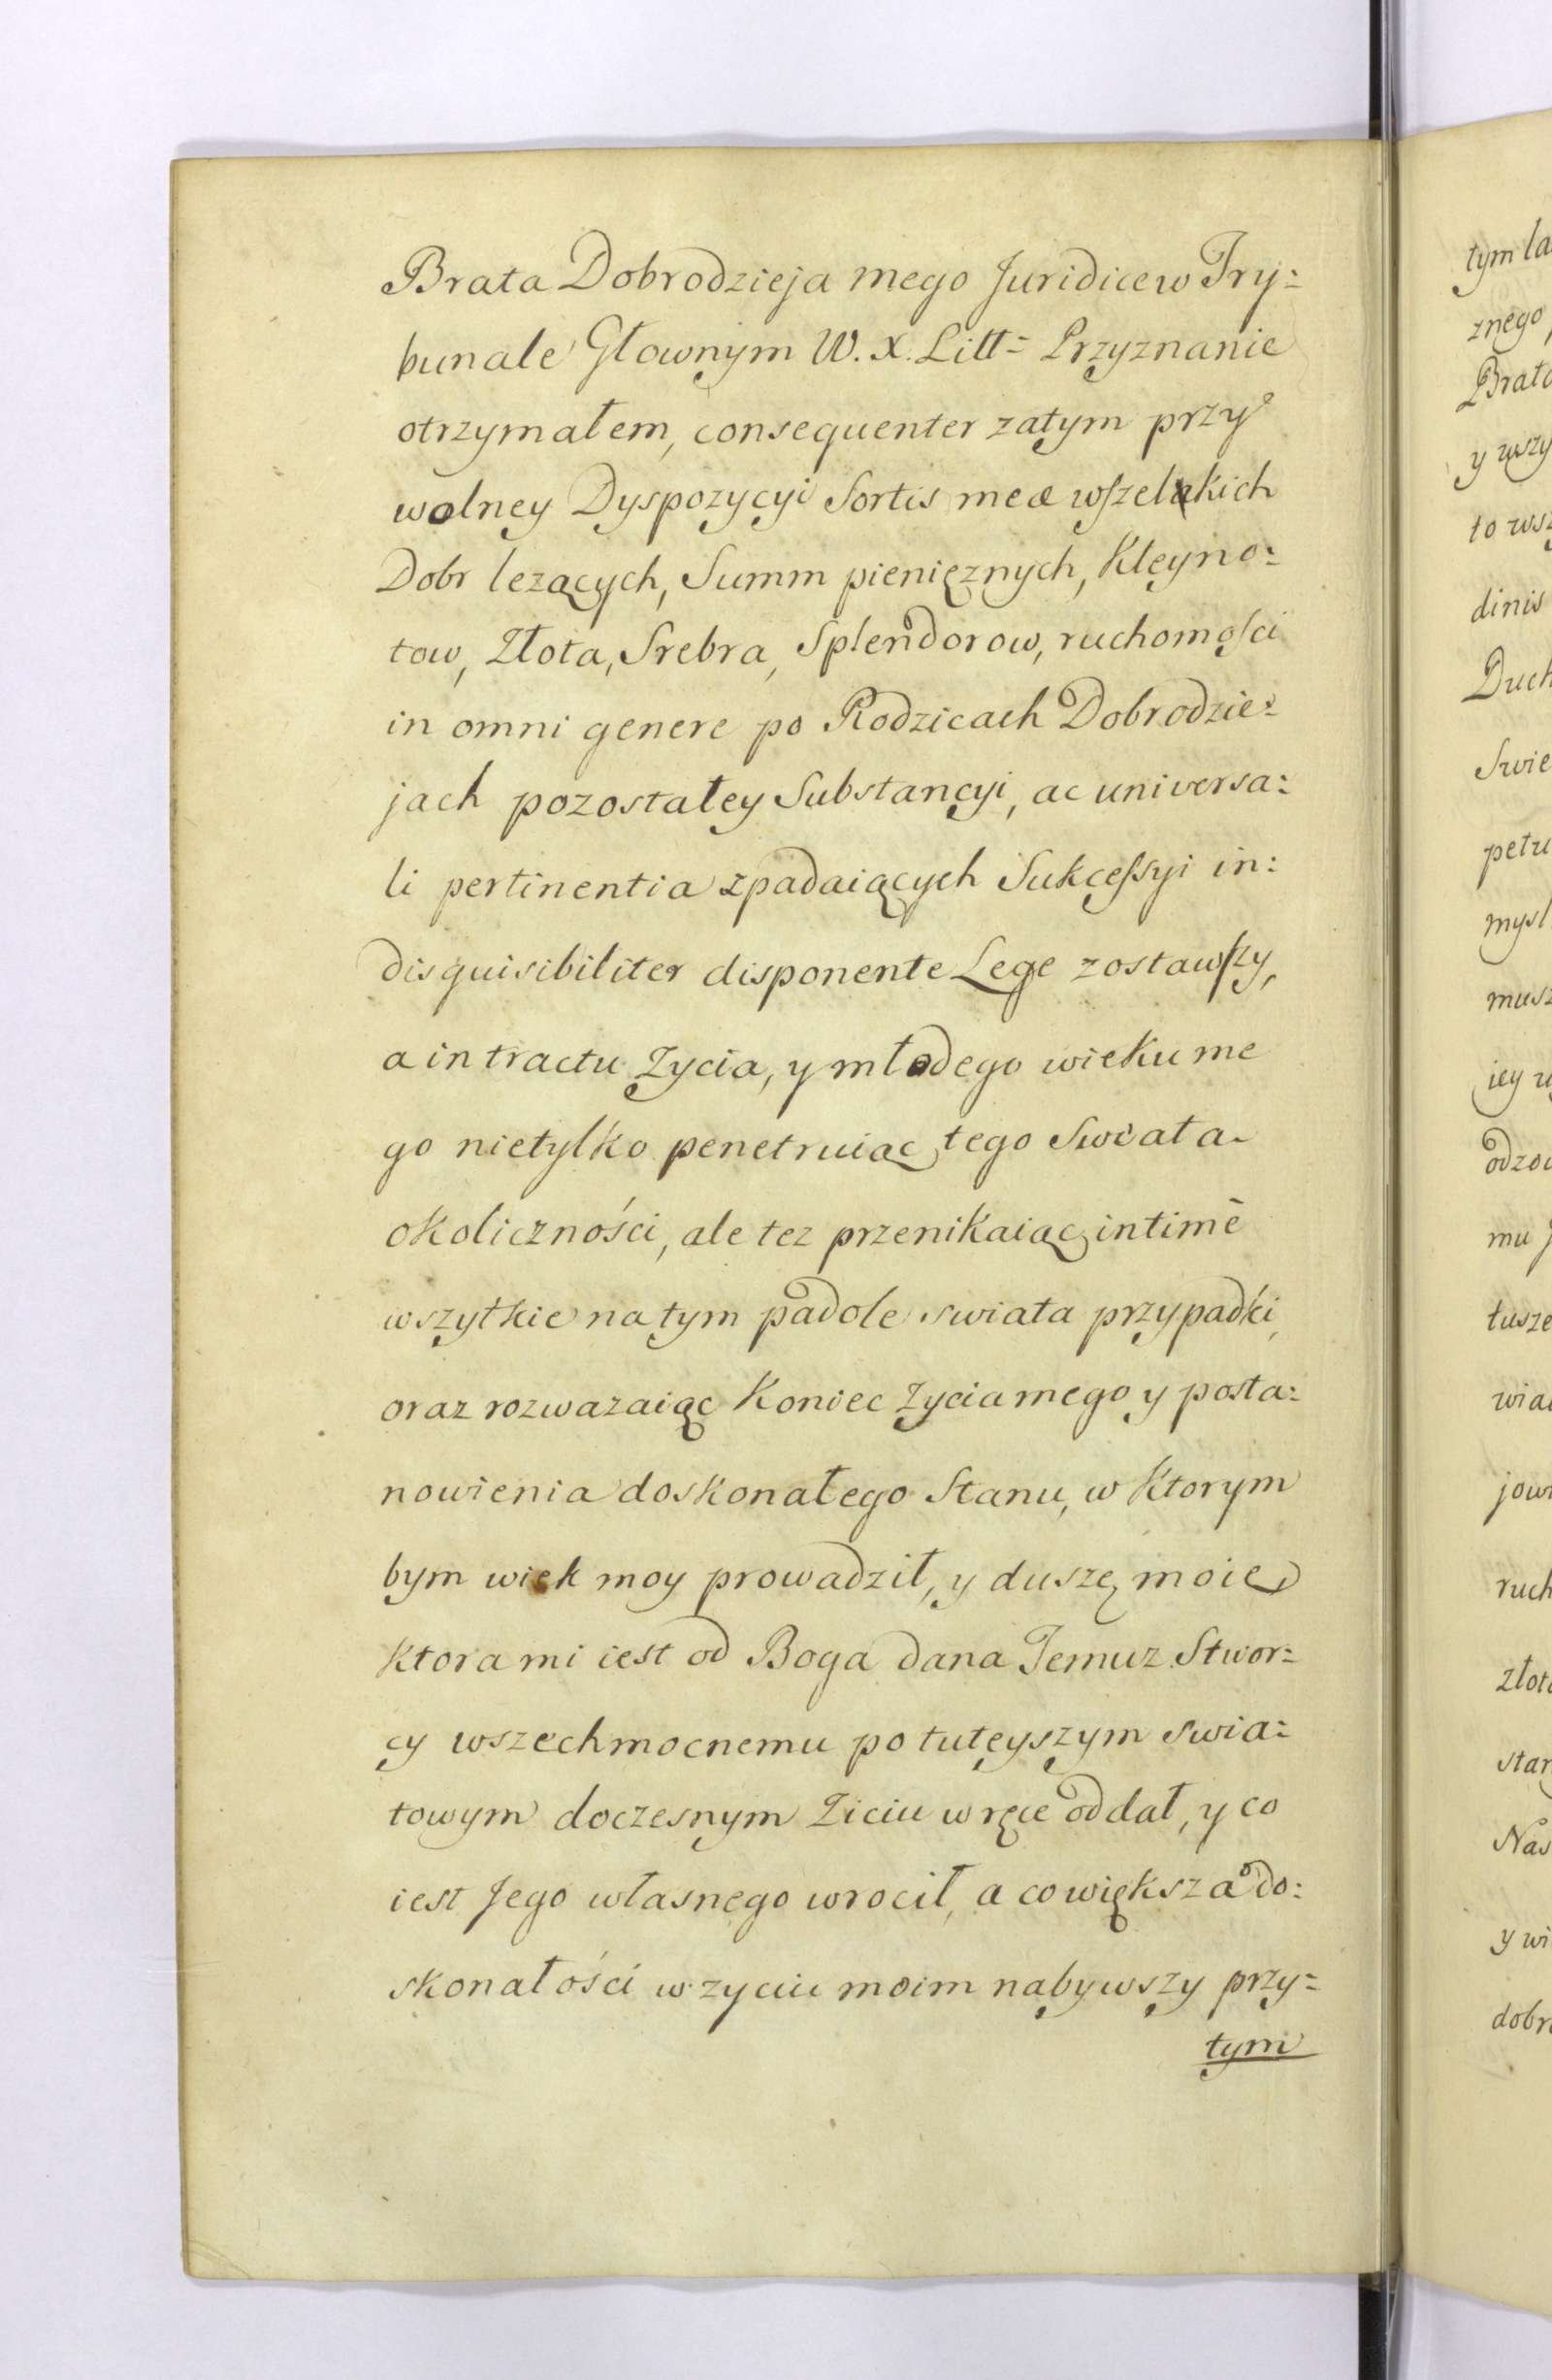 Brata Dobrodzieja mego Juridice w Try:
bunale Głownym W. X. Litt= Przyznanie
otrzymałem, consequenter zatym przy
wolney Dyspozycyi Sortis meæ wszelakich
Dobr lezących, Summ pienięznych, Kleyno:
tow, Złota, Srebra, Splendorow, ruchomości
in omni genere po Rodzicach Dobrodzie:
jach pozostałey Substancyi, ac universa:
li pertinentia zpadaiących Sukcessyi in:
disquisibiliter disponente Lege zostawszy,
a in tractu Zycia, y młodego wieku me
go nietylko penetruiąc tego Swiata
okoliczności, ale tez przenikaiąc intimè
wszytkie na tym padole swiata przypadki,
oraz rozwazaiąc Koniec Zycia mego y posta:
nowienia doskonałego Stanu, w Ktorym
bym wiek moy prowadził, y duszę moię
Ktora mi iest od Boga dana Temuz Stwor:
cy wszechmocnemu po tuteyszym swia:
towym doczesnym Ziciu w ręce oddał, y co
iest Jego własnego wrocił, a co większa do:
skonałości w zyciu moim nabywszy przy:
tym
tym la
znego,
Brata
y wszy
to wsz
dinis
Duch
Swie
petu
mysl
musz
iey w
odzo
mu J
tusze
wia
jow
ruch
złot
Nas
y wi
dobr